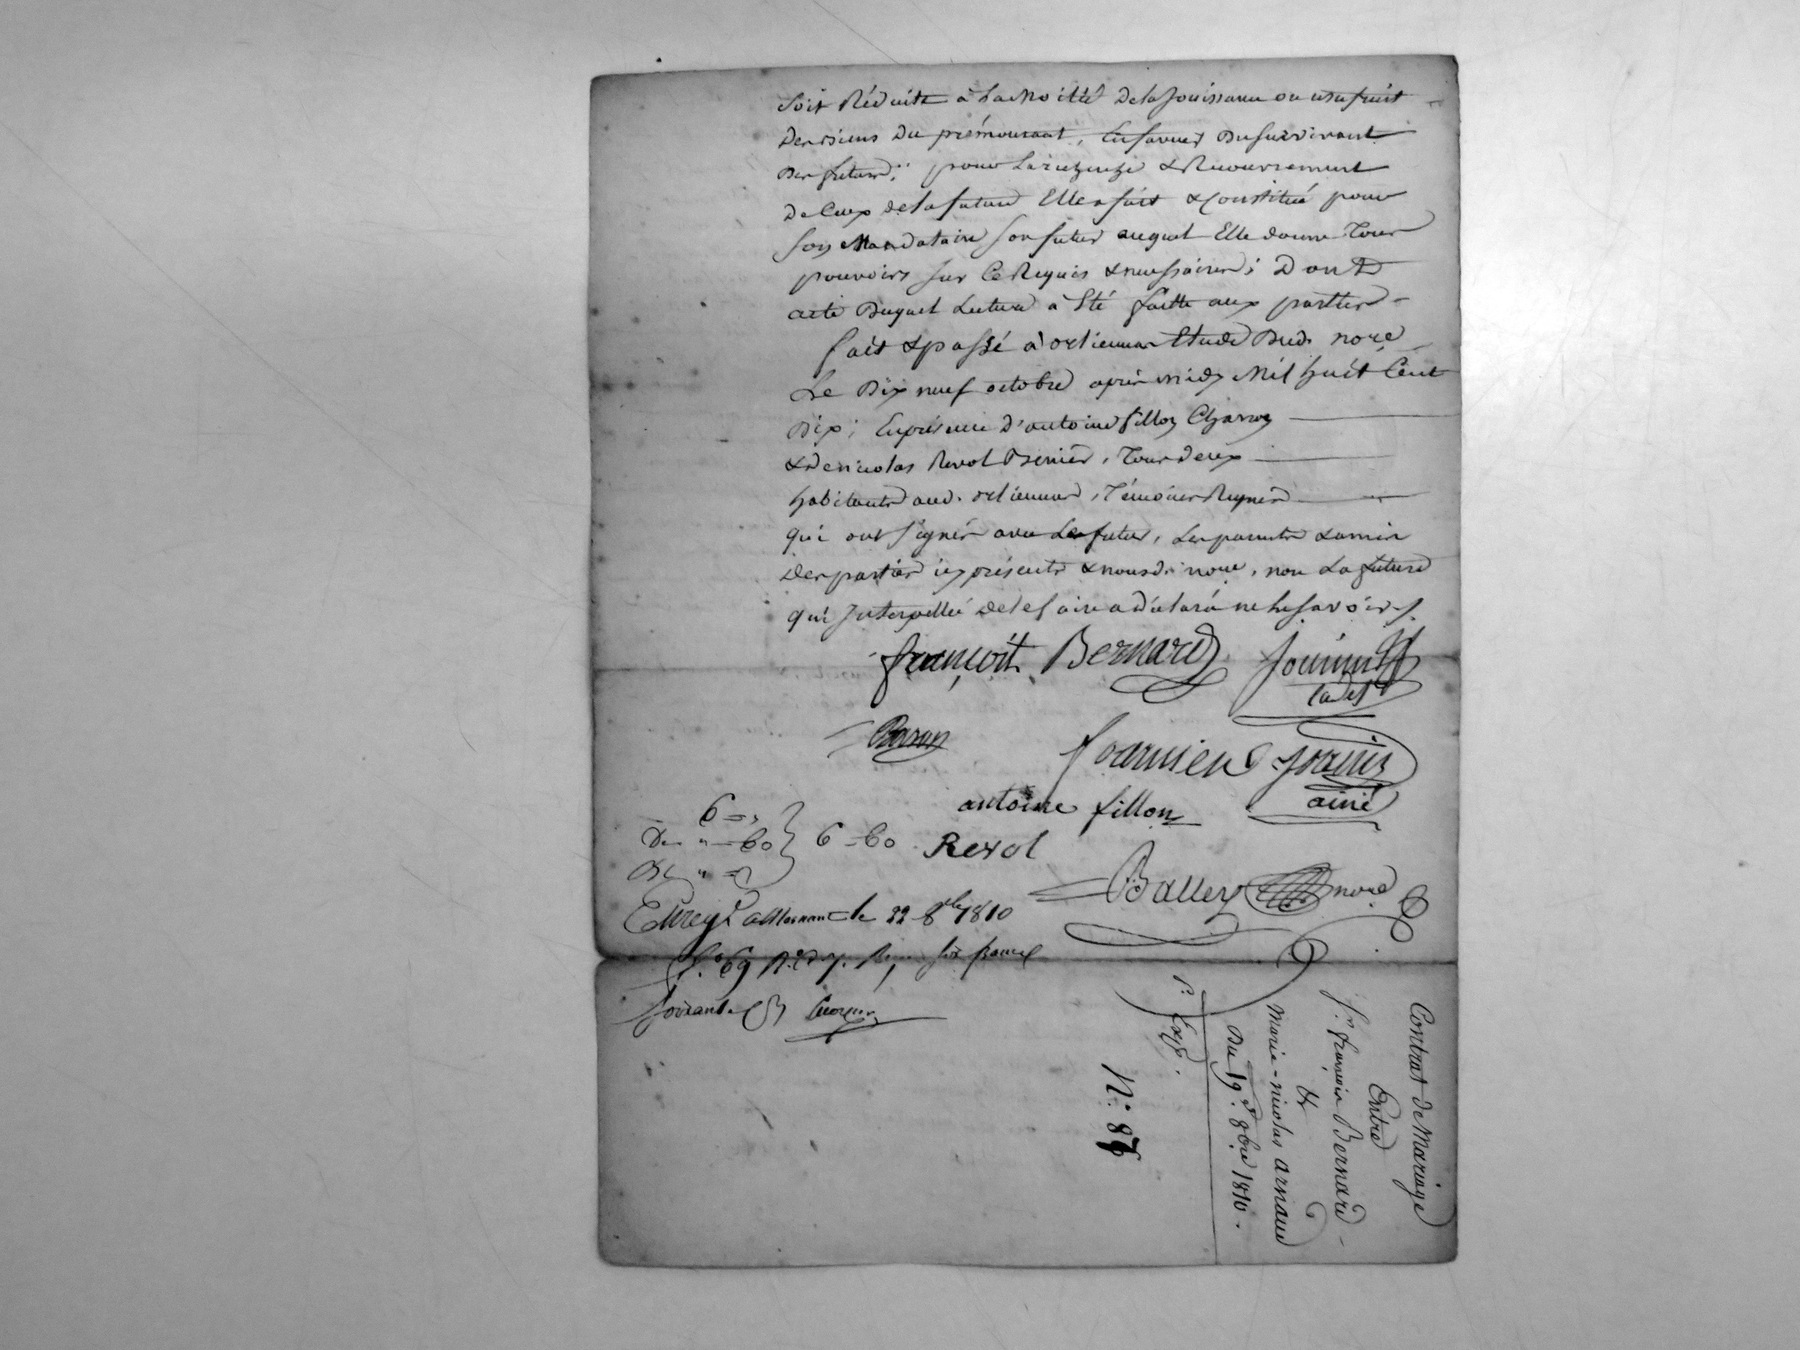 soit Réduite à la moitié de la Jouissance ou usufruit
des siens du prémourant, En faveur du survivant
des futurs; pour la &amp; Recouvrement
de Ceux de la future Elle a fait & Constitué pour
son Mandataire son futur auquel Elle donne Tous
pouvoirs sur Ce Requis & nécessaires; Dont
acte Duquel Lecture a Eté faitte aux parties -
fait & passé à ordiennas Etude Dud. nore
Le Dix neuf octobre après midy Mil huit Cent
Dix; En présence d'antoine fillon Charron
& de nicolas Revol, Tous deux
habitants aud. ordiennas, Témoins Requis
qui ont signés avec Le futur, Les parents & amis
des parties icy présents & nousd. nore, non La future
qui Interpellée de le faire a déclaré ne le savoir ./.
françoit Bernard
Journis
Cadet
fournier Journis
ainé
antoine fillon
6 = "
De " - 60 6 - 60
Revol
Balley nore
Enreg. a Mornant le 22 8bre 1810
f.° 69 R.° six francs
soixante
Contrat de Mariage
Entre
Sr. françois Bernard -
&
Marie-nicolas arnaud
Du 19. 8bre 1810.
1e. Exp.
N.° 87